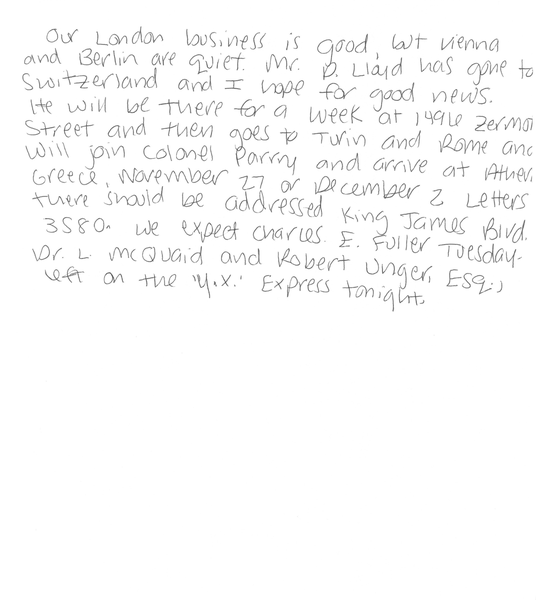 Our London business is good, but Vienna
and Berlin are quiet. Mr. D. Lloyd has gone to
Switzerland and I hope for good news.
He will be there for a week at 1496 Zermot
Street and then goes to Turin and Rome and
will join Colonel Parry and arrive at Athen
Greece, November 27 or December 2 Letters
there should be addressed King James Blvd.
3580. We expect Charles E. Fuller Tuesday.
Dr. L. McQuaid and Robert Unger, Esq.,
left on the 'Y.X.' Express tonight.